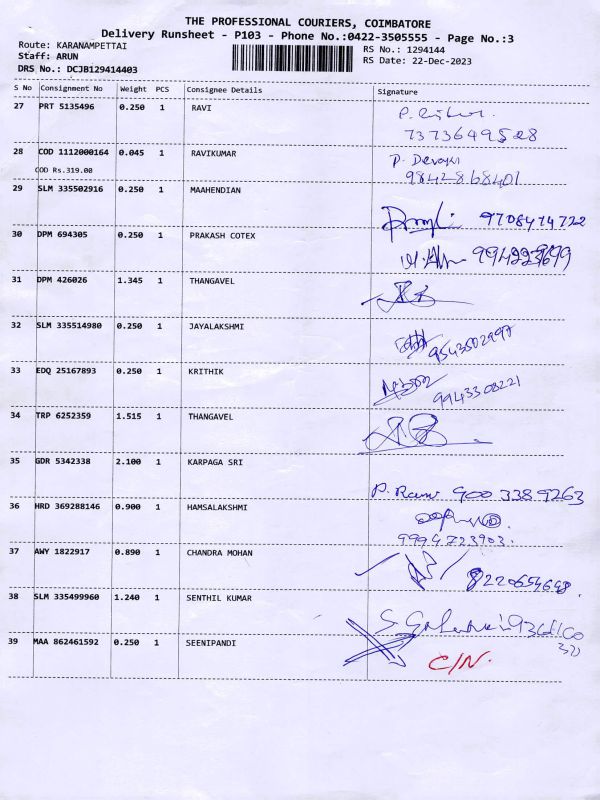 THE PROFESSIONAL COURIERS, COIMBATORE
Delivery Runsheet - P103 - Phone No.:0422-3505555 - Page No.:3
Route: KARANAMPETTAI
Staff: ARUN
DRS No.: DCJB129414403
RS No.: 1294144
RS Date: 22-Dec-2023
S No Consignment No Weight PCS Consignee Details Signature
27 PRT 5135496 0.250 1 RAVI
28 COD 1112000164 0.045 1 RAVIKUMAR P. Devaki
COD Rs.319.00 9842868401
29 SLM 335502916 0.250 1 MAAHENDIAN
9708474722
30 DPM 694305 0.250 1 PRAKASH COTEX
31 DPM 426026 1.345 1 THANGAVEL
32 SLM 335514980 0.250 1 JAYALAKSHMI
9543502997
33 EDQ 25167893 0.250 1 KRITHIK
9943308221
34 TRP 6252359 1.515 1 THANGAVEL
35 GDR 5342338 2.100 1 KARPAGA SRI
P. Ram 900 338 9263
36 HRD 369288146 0.900 1 HAMSALAKSHMI
9994723903.
37 AWY 1822917 0.890 1 CHANDRA MOHAN
8220654648
38 SLM 335499960 1.240 1 SENTHIL KUMAR
39 MAA 862461592 0.250 1 SEENIPANDI
C/N.